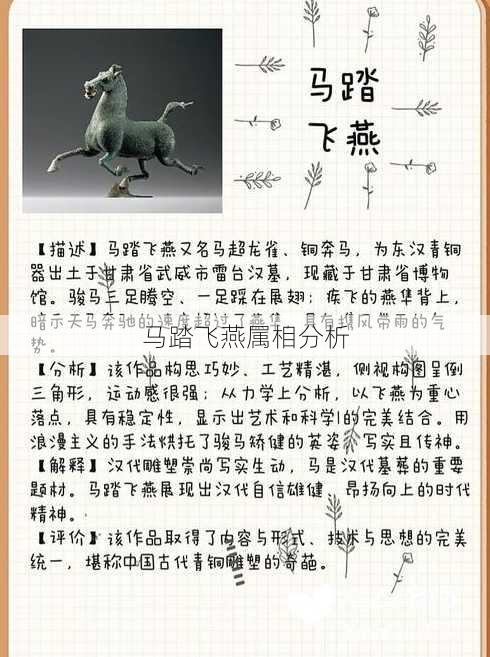 马踏
飞燕
【描述】马踏飞燕又名马超龙雀、铜奔马，为东汉青铜
器出土于甘肃省武威市雷台汉墓，现藏于甘肃省博物
馆。骏马三足腾空、一足踩在展翅；疾飞的燕隼背上，
暗示天马奔驰的速度超过了燕隼，具有携风带雨的气
势。
马踏飞燕属相分析
【分析】该作品构思巧妙、工艺精湛，侧视构图呈倒
三角形，运动感很强；从力学上分析，以飞燕为重心
落点，具有稳定性，显示出艺术和科学的完美结合。用
浪漫主义的手法烘托了骏马矫健的英姿，写实且传神。
【解释】汉代雕塑崇尚写实生动，马是汉代墓葬的重要
题材。马踏飞燕展现出汉代自信雄健、昂扬向上的时代
精神。
【评价】该作品取得了内容与形式、技术与思想的完美
统一，堪称中国古代青铜雕塑的奇葩。